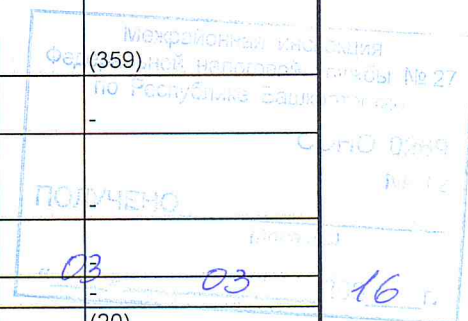 Межрайонная инспекция
(359)
Федеральной налоговой службы № 27
по Республике Башкортостан
-
СОНО
-
ПОЛУЧЕНО
-
« 03 » 03 16 г.
-
(20)